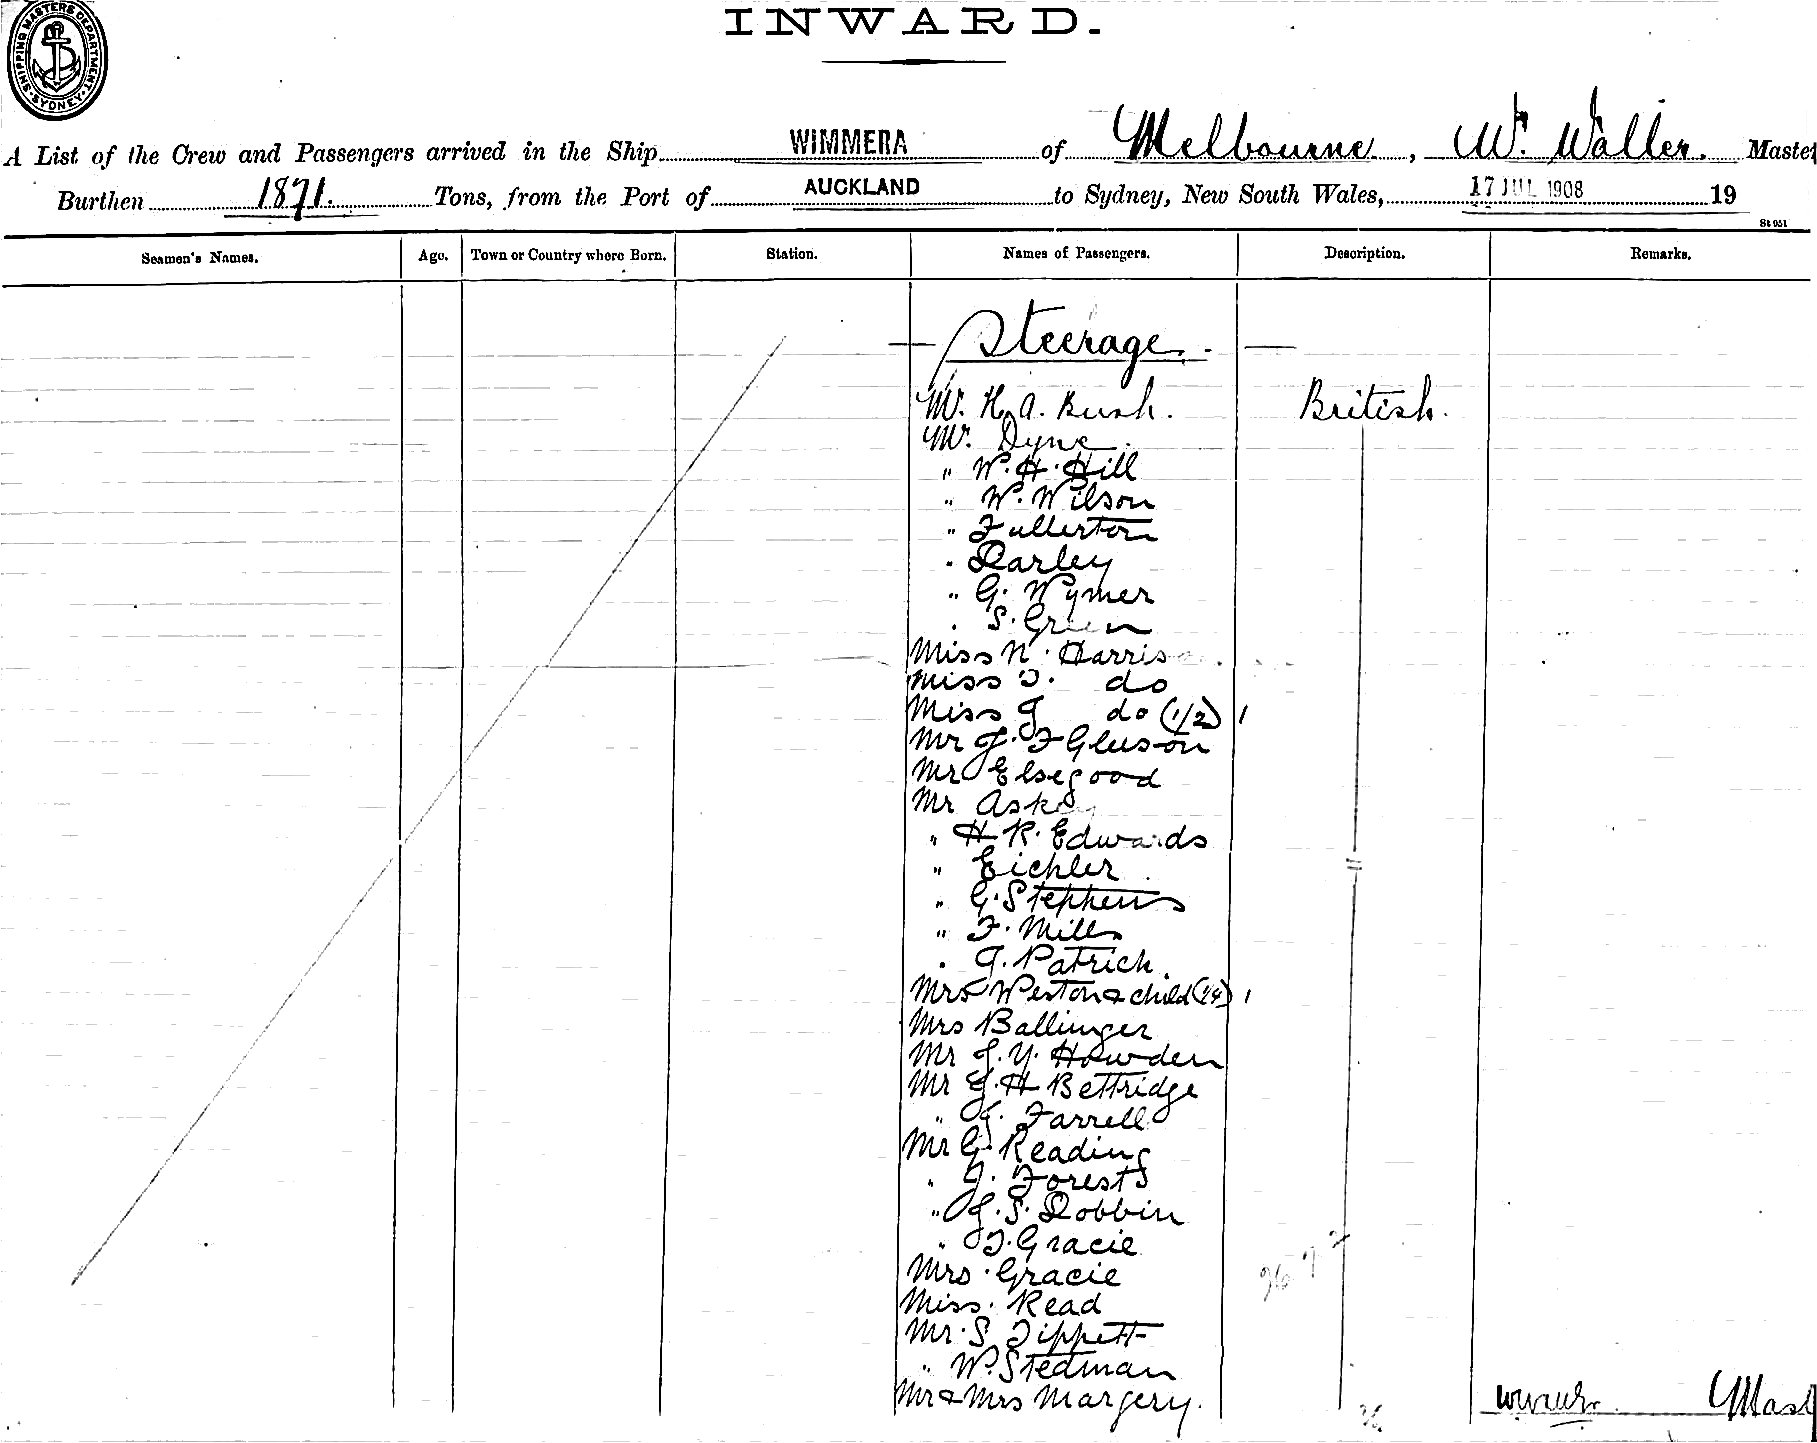 INWARD.
SHIPPING MASTERS DEPARTMENT SYDNEY
A List of the Crew and Passengers arrived in the Ship WIMMERA of Melbourne, W. Waller. Master
Burthen 1871. Tons, from the Port of AUCKLAND to Sydney, New South Wales, 17 JUL 1908 19
St 051
Seamen's Names. Age. Town or Country where Born. Station. Names of Passengers. Description. Remarks.
Steerage.
Mr. H. A. Bush. British.
Mr. Dyne.
" W. H. Hill
" W. Wilson
" Fullerton
" Darley
" G. Wymer
" S. Green
Miss N. Harrison
Miss I. do
Miss J do (1/2) 1
Mr J. F Gleeson
Mr Elsegood
Mr Askey
" H R. Edwards
" Eichler
" G. Stephens
" F. Mills
" J. Patrick
Mrs Weston & child (1/4) 1
Mrs Ballinger
Mr J. Y. Howden
Mr J. H Bettridge
" J. Farrell
Mr G. Reading
" J. Forests
" J. S. Dobbin
" J. Gracie
Mrs. Gracie
Miss. Read
Mr. S Tippett
" W. Stedman
Mr & Mrs Margery.
Mast